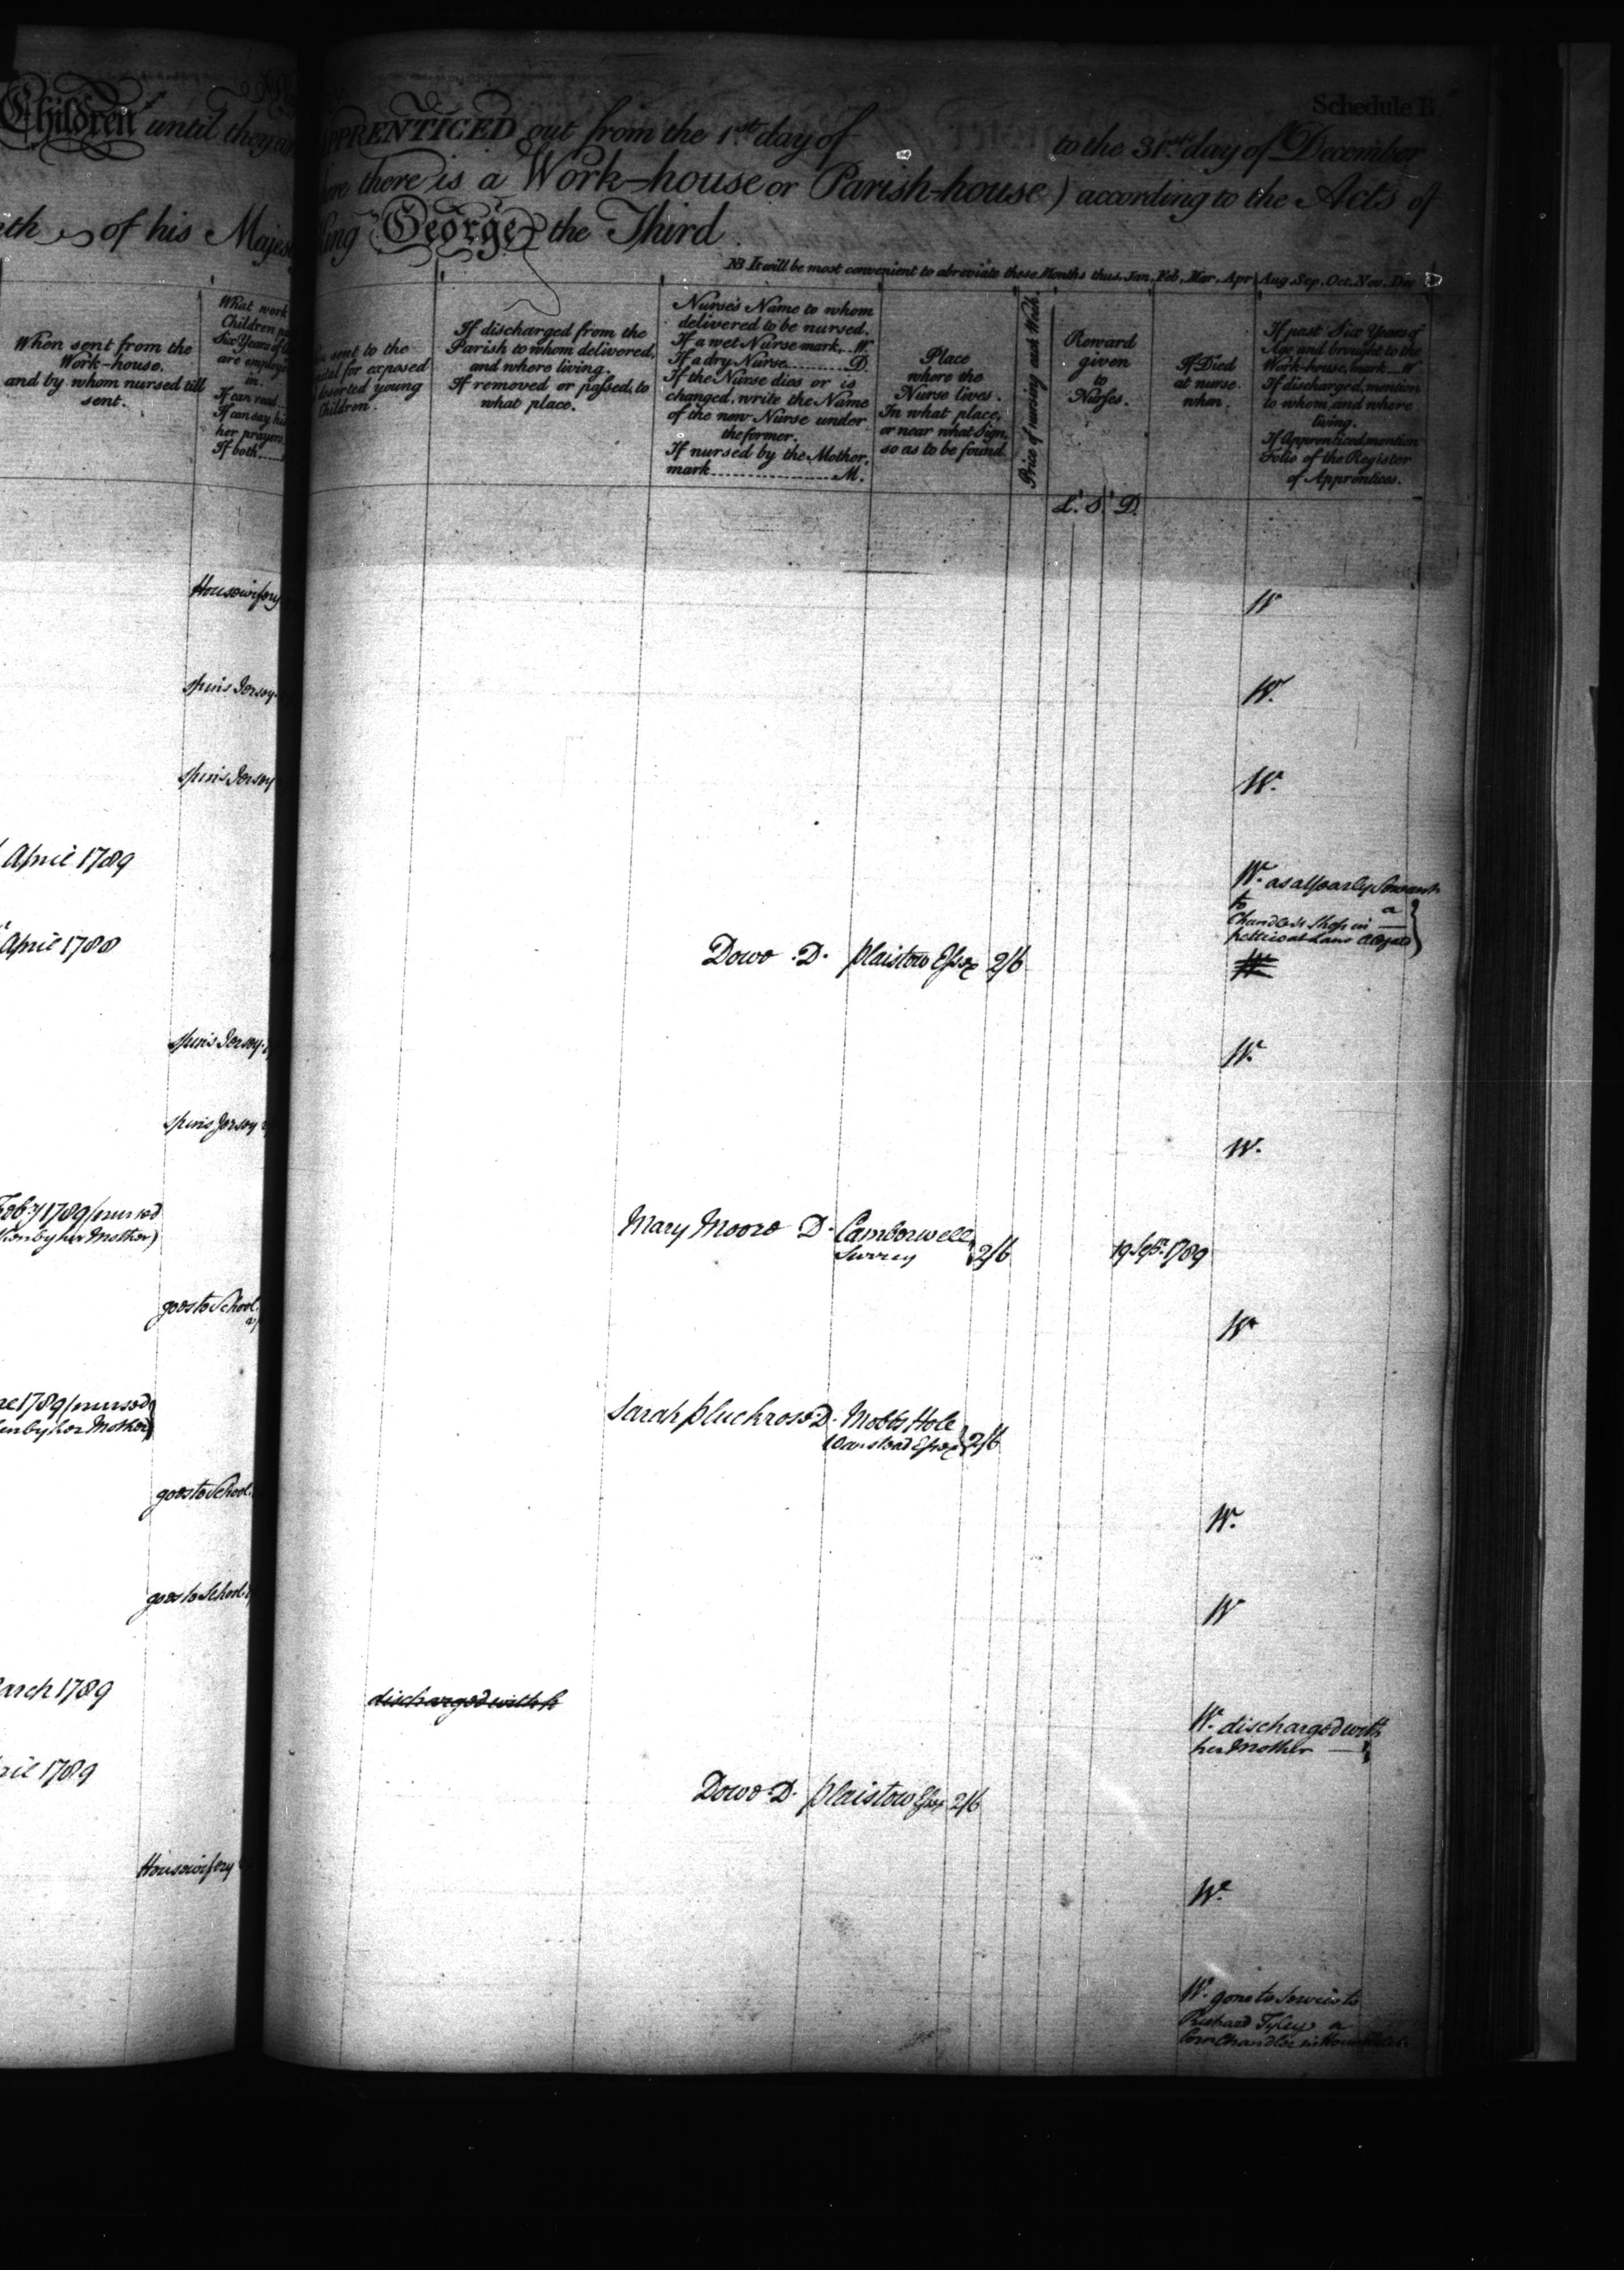 Schedule B
Children until they are
APPRENTICED out from the 1st day of to the 31st day of December
there is a Work-house or Parish-house) according to the Acts of
of his Majesty
King George the Third
NB It will be most convenient to abreviate these Months thus, Jan, Feb, Mar, Apr, Aug, Sep, Oct, Nov, Dec
When sent from the
Work-house,
and by whom nursed till
sent.
What work
Children
Six Years of
are employ
in.
If can read
If can say his
her prayers
If both
sent to the
for exposed
deserted young
Children.
If discharged from the
Parish to whom delivered,
and where living.
If removed or passed, to
what place.
Nurse's Name to whom
delivered to be nursed.
If a wet Nurse mark, W.
If a dry Nurse D.
If the Nurse dies or is
changed, write the Name
of the new Nurse under
the former.
If nursed by the Mother,
mark M.
Place
where the
Nurse lives.
In what place,
or near what Sign,
so as to be found.
Price of nursing each Week.
Reward
given
to
Nurses.
If Died
at nurse
when.
If past Six Years of
Age and brought to the
Work-house, mark W
If discharged, mention
to whom, and where
living.
If Apprenticed mention
Folio of the Register
of Apprentices.
L. S. D.
Housewifery W
spins Jersey W.
spins Jersey W.
April 1789 W. as a yearly Servant
to a
Chandlers Shop in
petticoat Lane Aldgate
April 1788 Dowo D. plaistow Essex 2/6 W
spins Jersey W.
spins Jersey W.
Feby 1789 (nursed Mary Moore D. Camberwell
by her Mother) Surrey 2/6 19 Sepr. 1789
goes to School W
1789 (nursed Sarah pluckrose D. Mobbs Hole
by her Mother) Wanstead Essex 2/6
goes to School W.
goes to School W
March 1789 discharged with h W. discharged with
her Mother
1789 Dowo D. plaistow Essex 2/6
Housewifery W.
W. gone to Service to
Richard Tyley a
Corn Chandler in